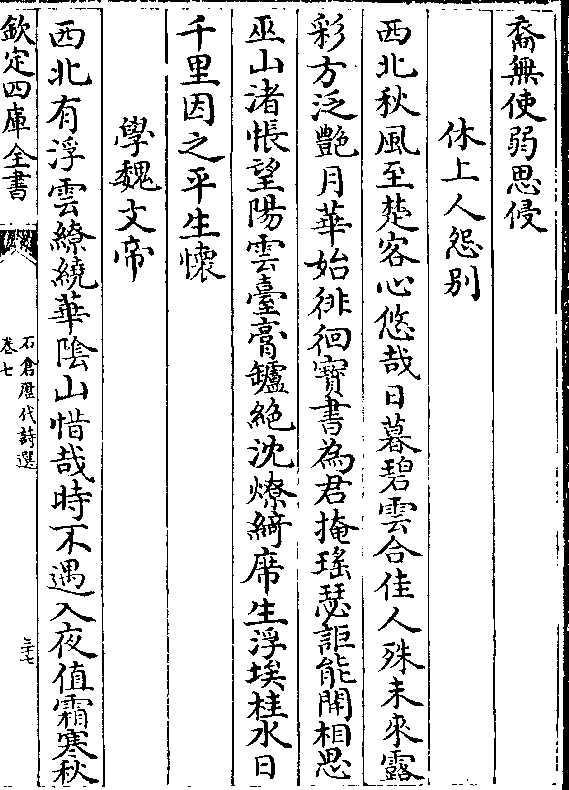 裔無使弱思侵
休上人怨别
西北秋風至楚客心悠哉日暮碧雲合佳人殊未來露
彩方泛艶月華始徘徊寳書為君掩瑤瑟詎能開相思
巫山渚悵望陽雲臺膏鑪絶沈燎綺席生浮埃桂水日
千里因之平生懷
學魏文帝
西北有浮雲繚繞華陰山惜哉時不遇入夜值霜寒秋
欽定四庫全書
石倉歷代詩選
卷七
三七